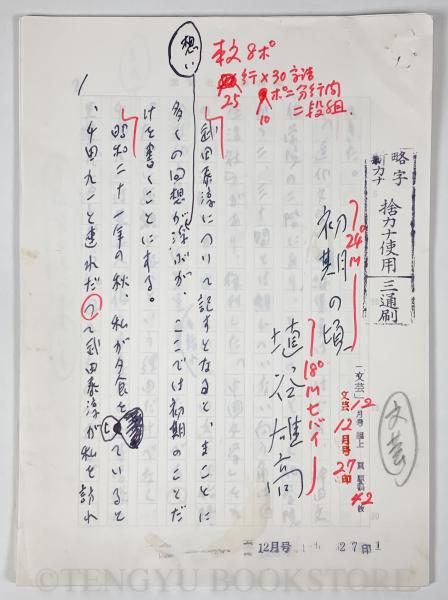 想い
本文8ポ
25行×30字詰
10ポ=分行間
二段組
1
略字
新カナ
捨カナ使用
三通刷
初期の頃
24º M
埴谷雄高
18º Mセバイ
「文芸」12月号
文芸
12月号
27印
42枚
文芸
武田泰淳について記すとなると、まことに
多くの回想が浮ぶが、ここでは初期のことだ
けを書くことにする。
昭和二十一年の秋、私が夕食をとっていると
、千田九一と連れだって武田泰淳が私を訪れ
12月号
27印
1
©TENGYU BOOKSTORE